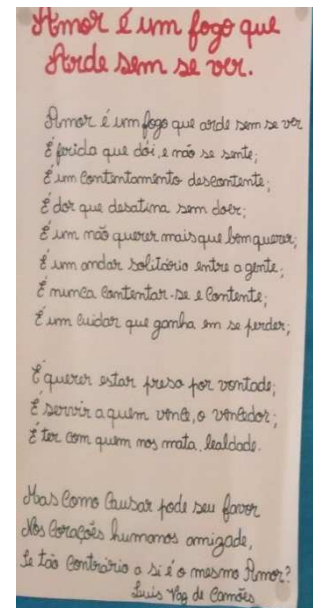 Amor é um fogo que
Arde sem se ver.
Amor é um fogo que arde sem se ver
É ferida que dói, e não se sente;
É um contentamento descontente;
É dor que desatina sem doer;
É um não querer mais que bem querer;
É um andar solitário entre a gente;
É nunca contentar-se e contente;
É um cuidar que ganha em se perder;
É querer estar preso por vontade;
É servir a quem vence, o vencedor;
É ter com quem nos mata, lealdade.
Mas como causar pode seu favor
Nos corações humanos amizade,
Se tão contrário a si é o mesmo Amor?
Luís Vaz de Camões